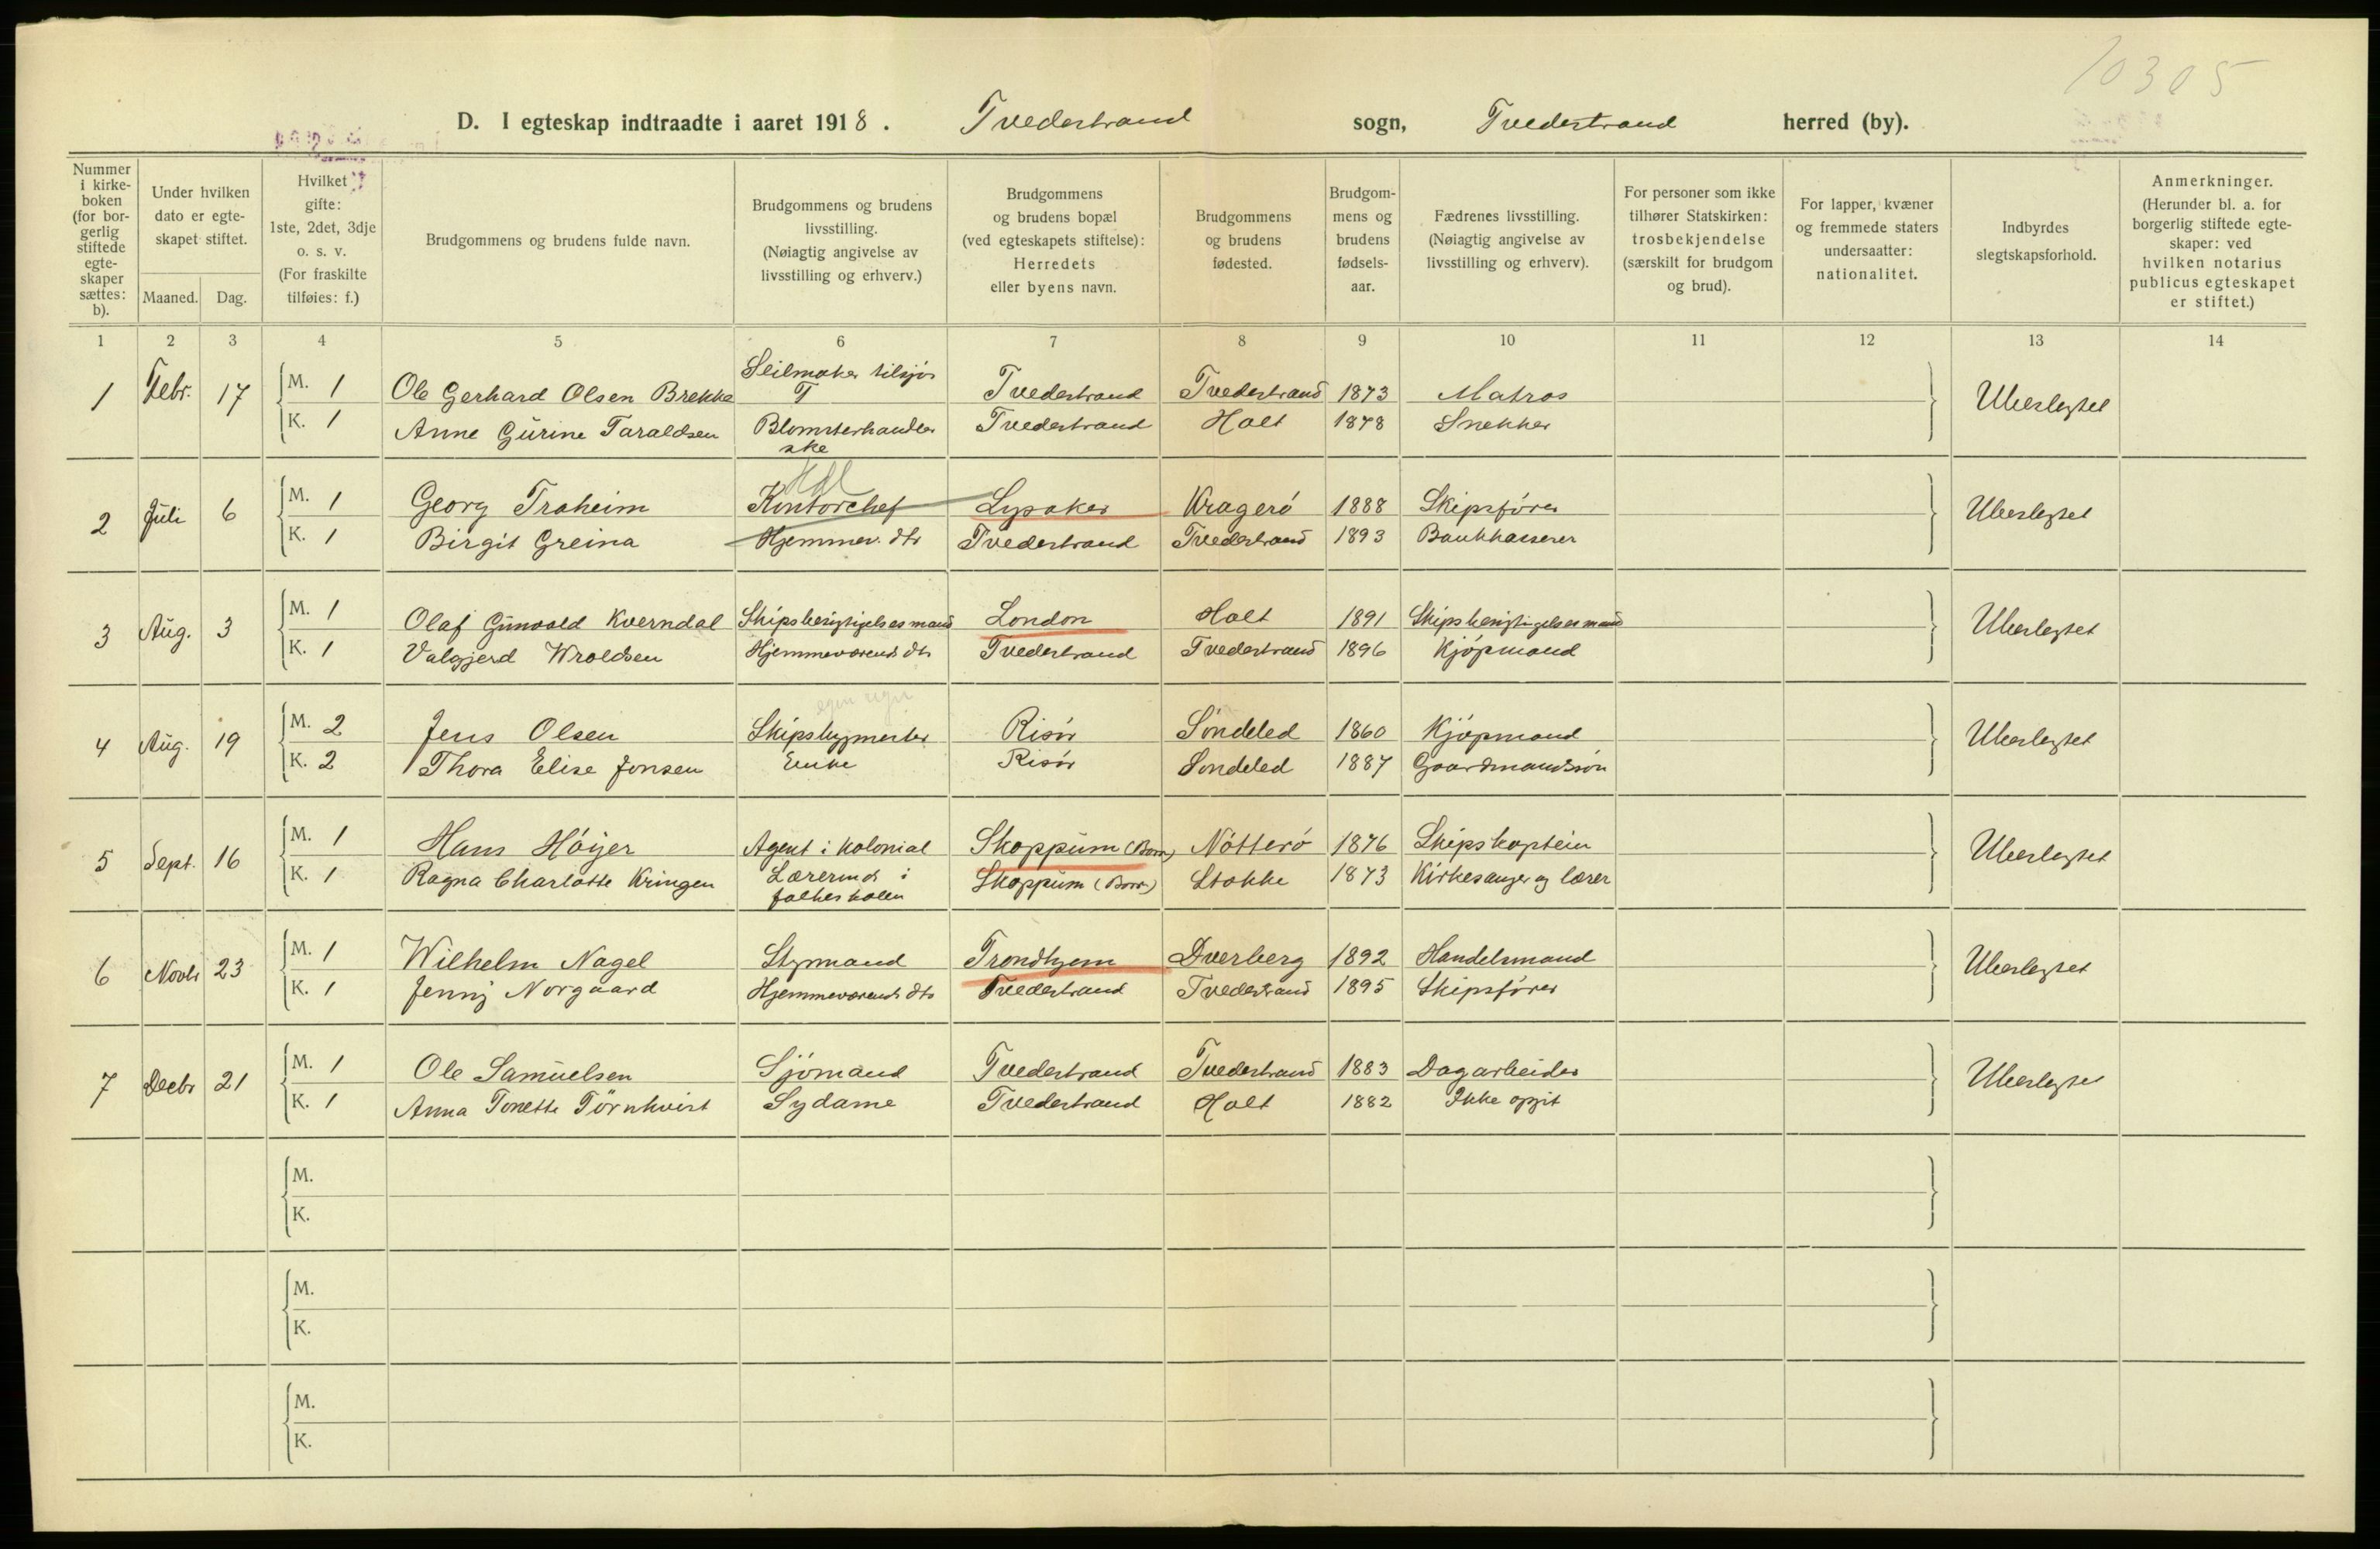 10305
D. I egteskap indtraadte i aaret 1918. Tvedestrand sogn, Tvedestrand herred (by).
Nummer i kirkeboken (for borgerlig stiftede egteskaper sættes: b).
Under hvilken dato er egteskapet stiftet.
Maaned. Dag.
Hvilket gifte: 1ste, 2det, 3dje o. s. v. (For fraskilte tilføies: f.)
Brudgommens og brudens fulde navn.
Brudgommens og brudens livsstilling. (Nøiagtig angivelse av livsstilling og erhverv.)
Brudgommens og brudens bopæl (ved egteskapets stiftelse): Herredets eller byens navn.
Brudgommens og brudens fødested.
Brudgommens og brudens fødselsaar.
Fædrenes livsstilling. (Nøiagtig angivelse av livsstilling og erhverv).
For personer som ikke tilhører Statskirken: trosbekjendelse (særskilt for brudgom og brud).
For lapper, kvæner og fremmede staters undersaatter: nationalitet.
Indbyrdes slegtskapsforhold.
Anmerkninger. (Herunder bl. a. for borgerlig stiftede egteskaper: ved hvilken notarius publicus egteskapet er stiftet.)
1 2 3 4 5 6 7 8 9 10 11 12 13 14
1 Febr. 17 M. 1 Ole Gerhard Olsen Brekke Seilmaker tilsjøs T Tvedestrand Tvedestrand 1873 Matros Ubeslegtet
K. 1 Anne Gurine Taraldsen Blomsterhandlerske Tvedestrand Holt 1878 Snekker
2 Juli 6 M. 1 Georg Traheim Kontorchef Lysaker Kragerö 1888 Skipsfører Ubeslegtet
K. 1 Birgit Greina Hjemmev. dtr Tvedestrand Tvedestrand 1893 Bankkasserer
3 Aug. 3 M. 1 Olaf Gunvald Kverndal Skipsbesigtigelsesmand London Holt 1891 Skipsbesigtigelsesmand Ubeslegtet
K. 1 Valgjerd Wroldsen Hjemmeværende dtr Tvedestrand Tvedestrand 1896 Kjøpmand
4 Aug. 19 M. 2 Jens Olsen Skipsbygmester Risör Söndeled 1860 Kjøpmand Ubeslegtet
K. 2 Thora Elise Jonsen Enke Risör Söndeled 1887 Gaardmandssön
5 Sept. 16 M. 1 Hans Höyer Agent i kolonial Skoppum (Borre) Nötterö 1876 Skipskaptein Ubeslegtet
K. 1 Ragna Charlotte Kringen Lærerinde i folkeskolen Skoppum (Borre) Stokke 1873 Kirkesanger og lærer
6 Novbr 23 M. 1 Wilhelm Nagel Stymand Trondhjem Dverberg 1892 Handelsmand Ubeslegtet
K. 1 Jenny Norgaard Hjemmeværende dtr Tvedestrand Tvedestrand 1895 Skipsfører
7 Decbr 21 M. 1 Ole Samuelsen Sjömand Tvedestrand Tvedestrand 1883 Dagarbeider Ubeslegtet
K. 1 Anna Tonette Törnkvist Sydame Tvedestrand Holt 1882 Ikke opgit
M.
K.
M.
K.
M.
K.